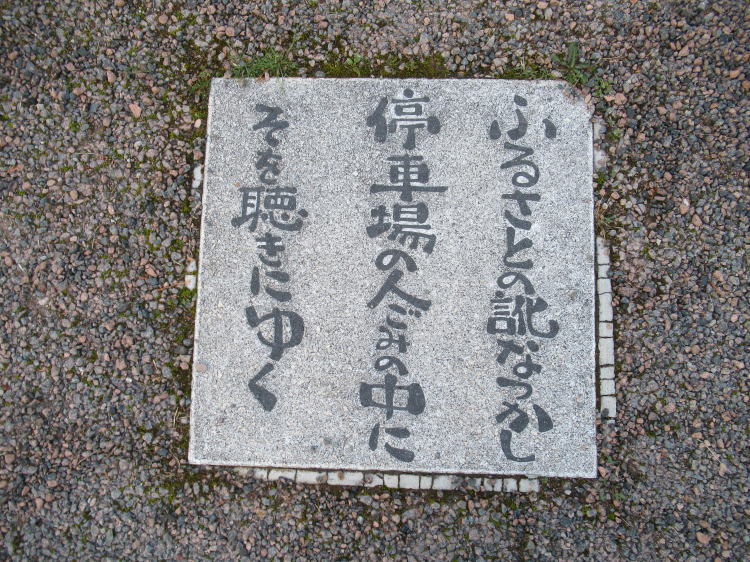 ふるさとの訛なつかし
停車場の人ごみの中に
そを聴きにゆく